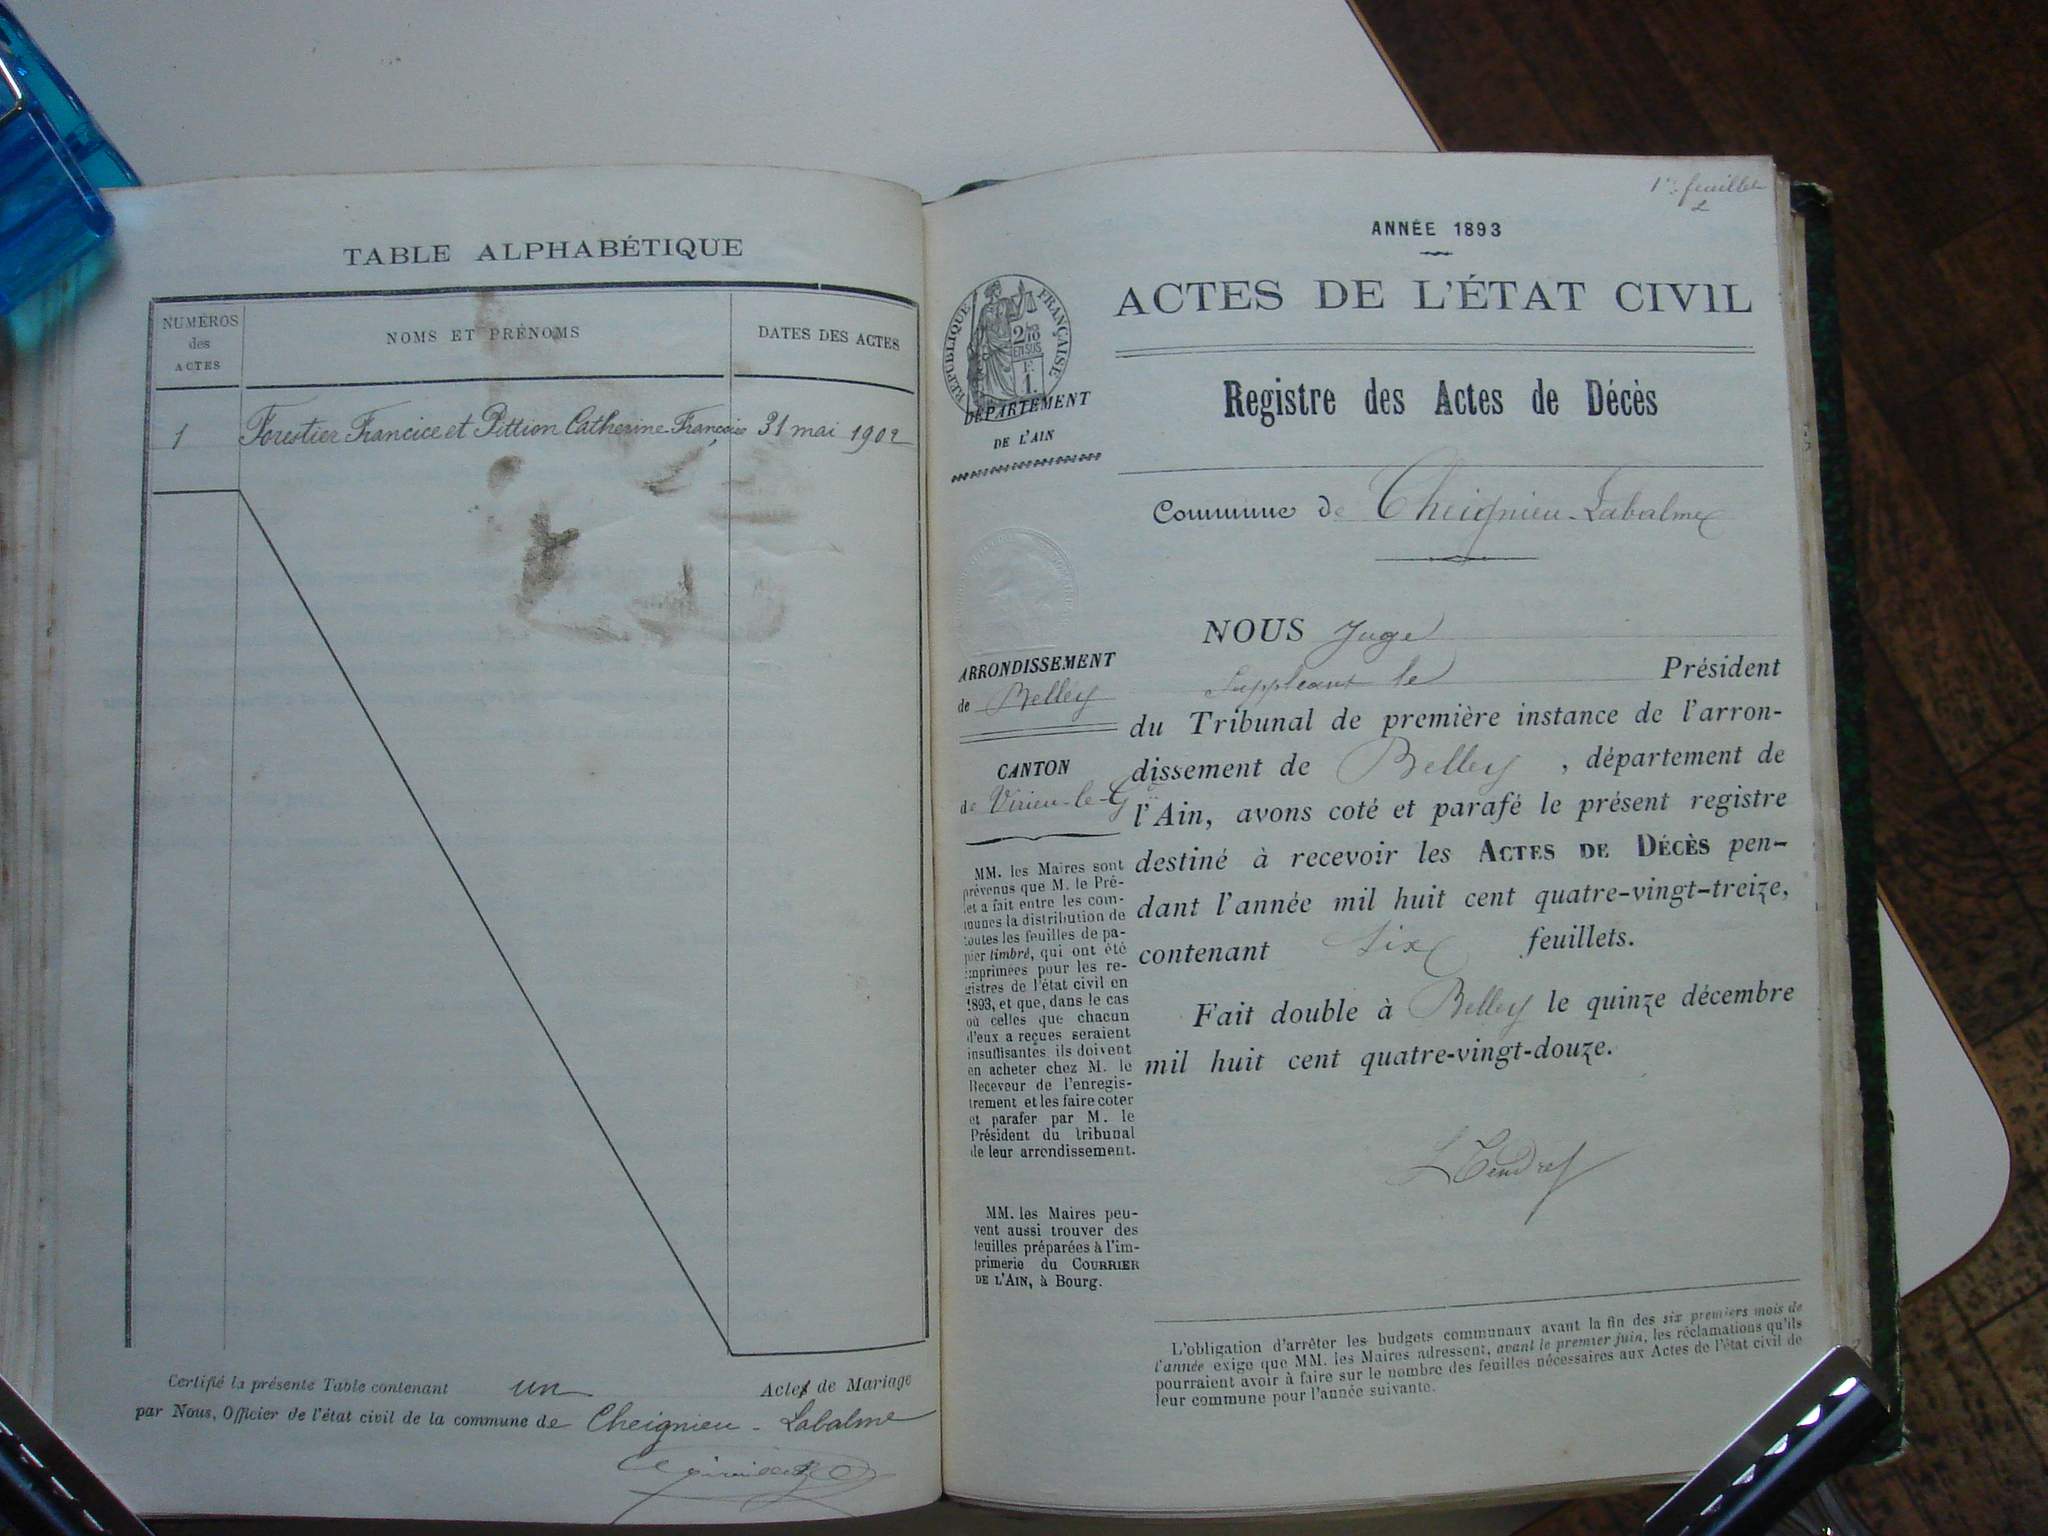 TABLE ALPHABÉTIQUE
NUMÉROS
des
ACTES
NOMS ET PRÉNOMS
DATES DES ACTES
1 Forestier Francice et Pettion Catherine Françoise 31 mai 1902
Certifié la présente Table contenant un Actes de Mariage
par Nous, Officier de l'état civil de la commune de Cheignieu-Labalme
1er feuillet
ANNÉE 1893
ACTES DE L'ÉTAT CIVIL
RÉPUBLIQUE FRANÇAISE
2/10
EN SUS
F.
1.
DÉPARTEMENT
DE L'AIN
Registre des Actes de Décès
Commune de Cheignieu-Labalme
ARRONDISSEMENT
de Belley
CANTON
de Virieu-le-Gd
MM. les Maires sont
prévenus que M. le Pré-
fet a fait entre les com-
munes la distribution de
toutes les feuilles de pa-
pier timbré, qui ont été
imprimées pour les re-
gistres de l'état civil en
1893, et que, dans le cas
où celles que chacun
d'eux a reçues seraient
insuffisantes ils doivent
en acheter chez M. le
Receveur de l'enregis-
trement et les faire coter
et parafer par M. le
Président du tribunal
de leur arrondissement.
MM. les Maires peu-
vent aussi trouver des
feuilles préparées à l'im-
primerie du COURRIER
DE L'AIN, à Bourg.
NOUS Juge
Suppléant le Président
du Tribunal de première instance de l'arron-
dissement de Belley, département de
l'Ain, avons coté et parafé le présent registre
destiné à recevoir les ACTES DE DÉCÈS pen-
dant l'année mil huit cent quatre-vingt-treize,
contenant six feuillets.
Fait double à Belley le quinze décembre
mil huit cent quatre-vingt-douze.
L'obligation d'arrêter les budgets communaux avant la fin des six premiers mois de
l'année exige que MM. les Maires adressent, avant le premier juin, les réclamations qu'ils
pourraient avoir à faire sur le nombre des feuilles nécessaires aux Actes de l'état civil de
leur commune pour l'année suivante.